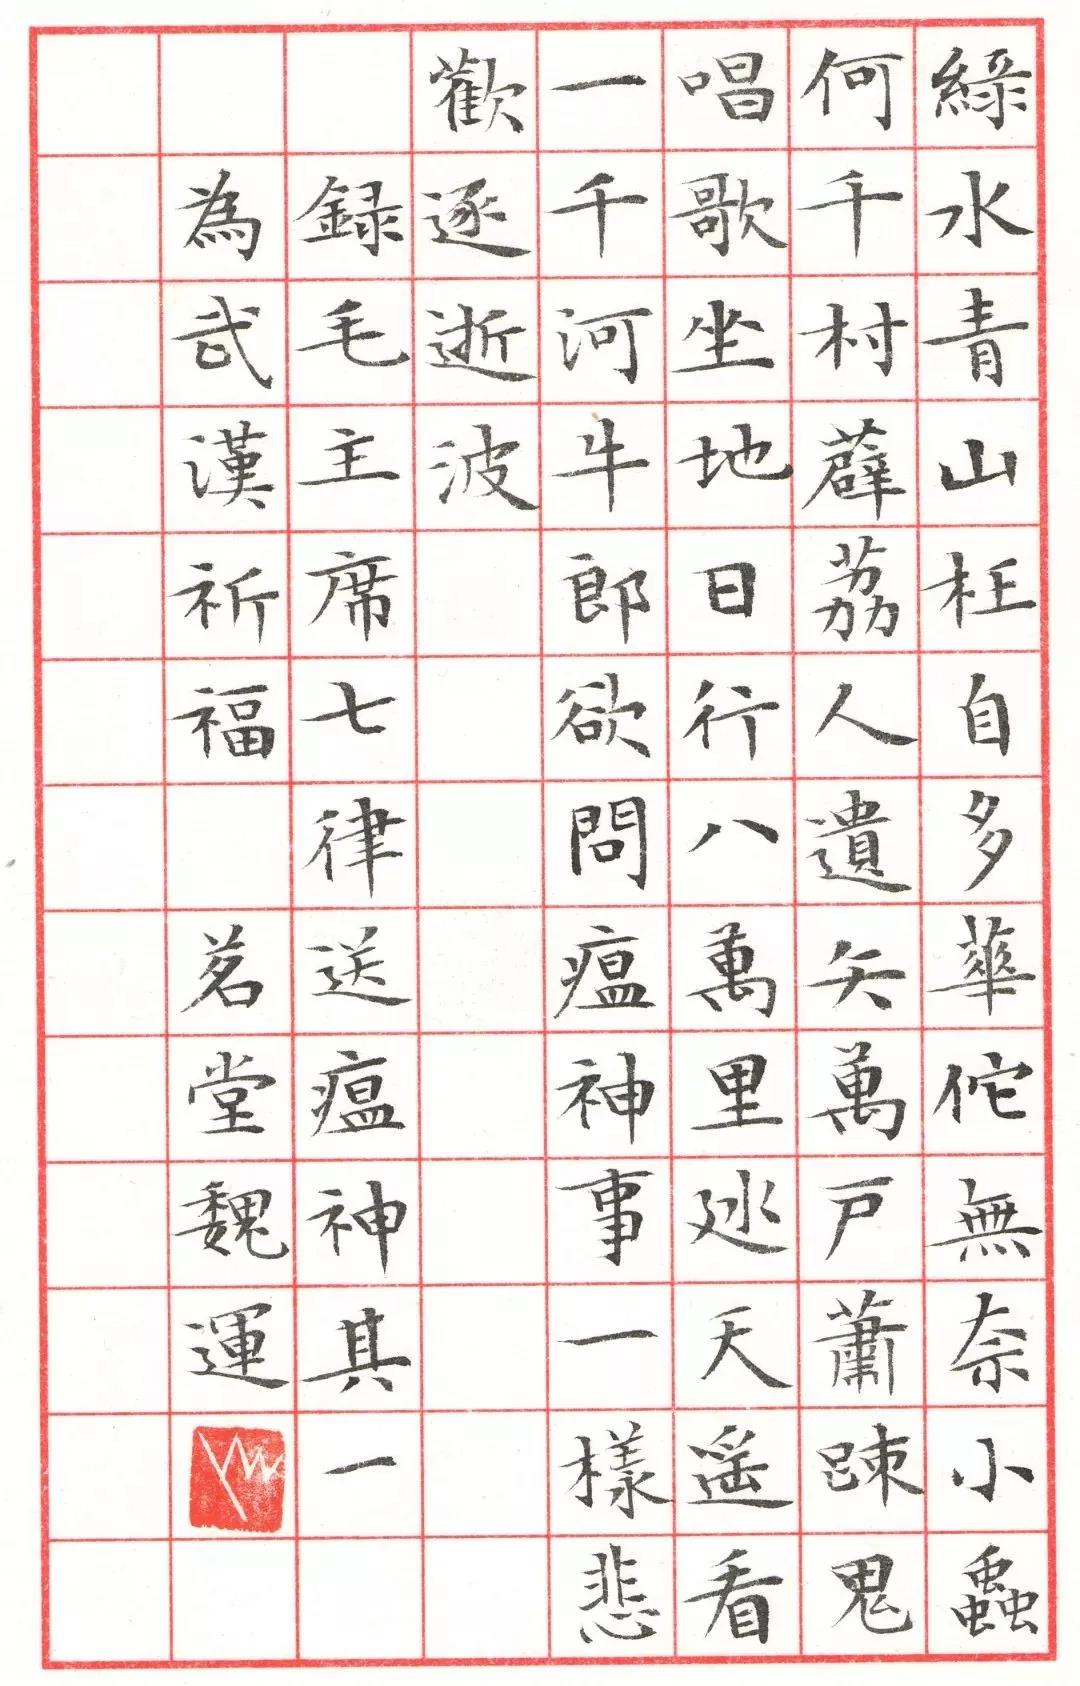 綠水青山枉自多華佗無奈小蟲
何千村薜荔人遺矢萬戶蕭踈鬼
唱歌坐地日行八萬里廵天遥看
一千河牛郎欲問瘟神事一樣悲
歡逐逝波
録毛主席七律送瘟神其一
為武漢祈福 茗堂魏運